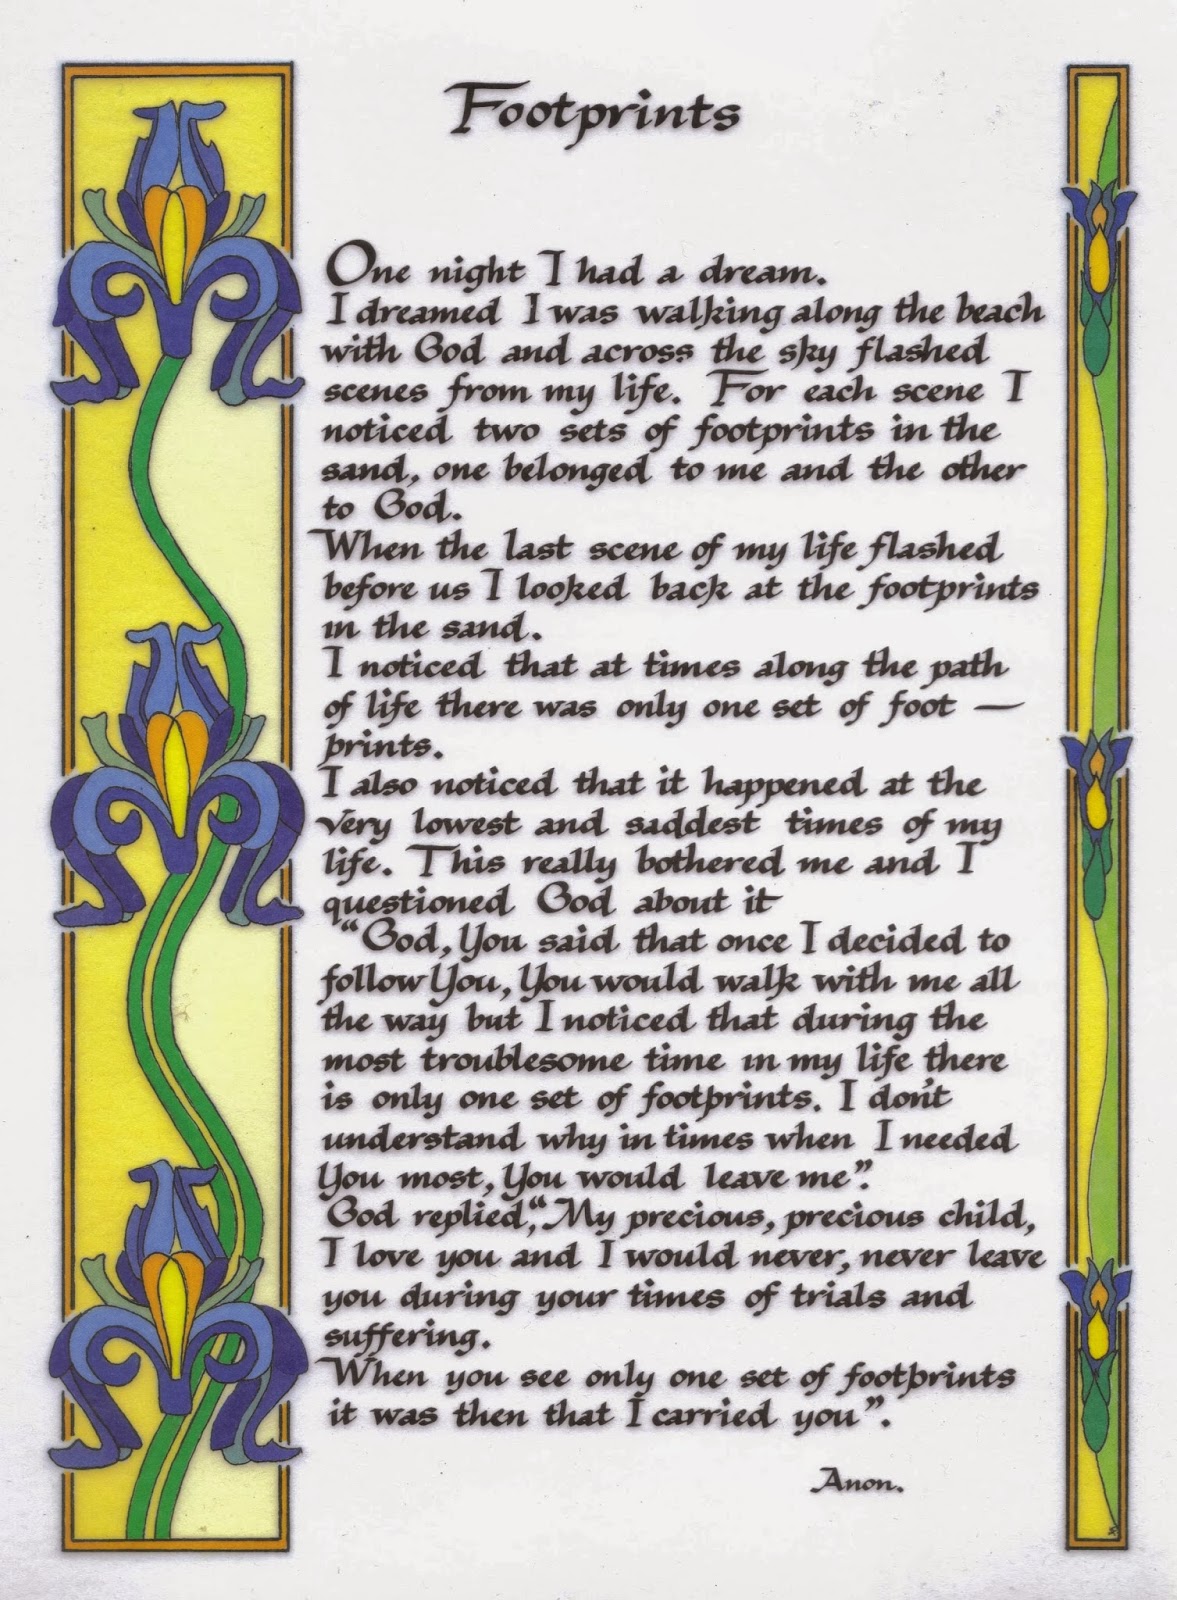 Footprints
One night I had a dream.
I dreamed I was walking along the beach
with God and across the sky flashed
scenes from my life. For each scene I
noticed two sets of footprints in the
sand, one belonged to me and the other
to God.
When the last scene of my life flashed
before us I looked back at the footprints
in the sand.
I noticed that at times along the path
of life there was only one set of foot —
prints.
I also noticed that it happened at the
very lowest and saddest times of my
life. This really bothered me and I
questioned God about it
"God, You said that once I decided to
follow You, You would walk with me all
the way but I noticed that during the
most troublesome time in my life there
is only one set of footprints. I don't
understand why in times when I needed
You most, You would leave me".
God replied, "My precious, precious child,
I love you and I would never, never leave
you during your times of trials and
suffering.
When you see only one set of footprints
it was then that I carried you".
Anon.